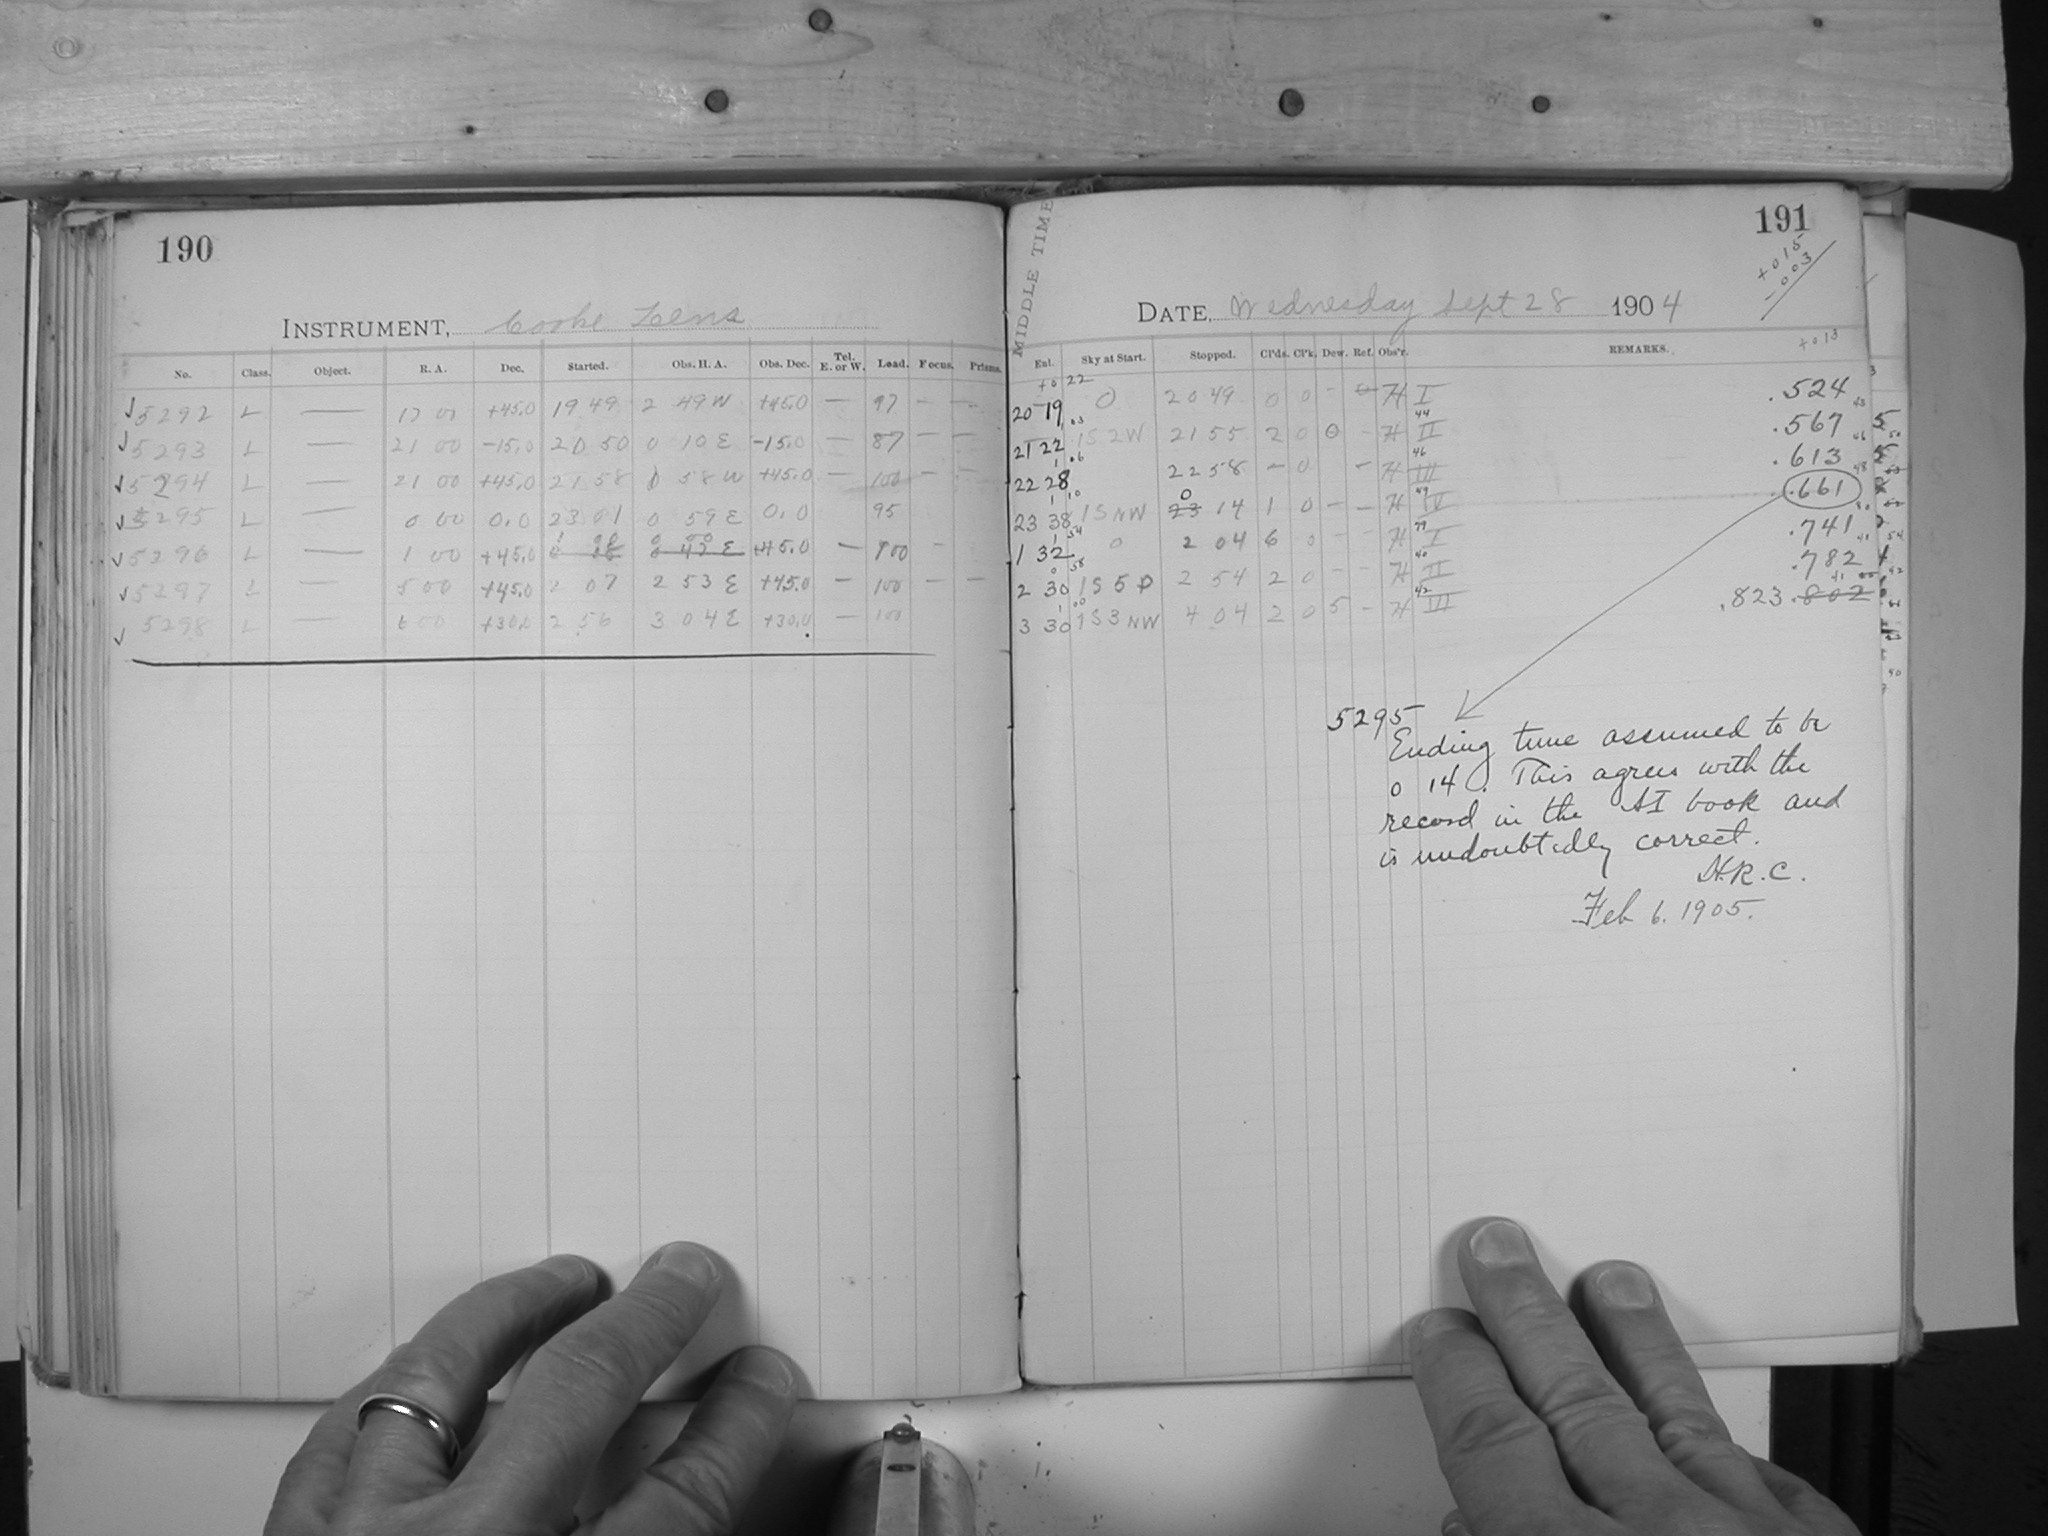 190
INSTRUMENT, Cooke Lens
No. Class. Object. R. A. Dec. Started. Obs. H. A. Obs. Dec. Tel. E. or W. Load. Focus. Prisms.
5292 L — 17 00 +45.0 19 49 2 49 W +45.0 — 97 — —
5293 L — 21 00 -15.0 20 50 0 10 E -15.0 — 87 — —
5294 L — 21 00 +45.0 21 58 0 58 W +45.0 — 100 — —
5295 L — 0 00 0.0 23 01 0 59 E 0.0 95
5296 L — 1 00 +45.0 +45.0 — 100 -
5297 L — 5 00 +45.0 2 07 2 53 E +45.0 — 100 — —
5298 L — 6 00 +30.0 2 56 3 04 E +30.0 — 100
191
MIDDLE TIME
+015
-003
DATE, Wednesday Sept 28 1904
+013
Sky at Start. Stopped. Cl'ds. Cl'k. Dew. Ref. Obs'r. REMARKS.
+0 22
20 19 0 20 49 0 0 - H I .524
21 22 1S2W 21 55 2 0 0 - H II .567
22 28 22 58 - 0 - H III .613
23 38 1SNW 0 23 14 1 0 - - H IV .661
1 32 0 2 04 6 0 - - H I .741
2 30 1S5P 2 54 2 0 - - H II .782
3 30 1S3NW 4 04 2 0 5 - H III .823 .802
5295
Ending time assumed to be
0 14. This agrees with the
record in the AI book and
is undoubtedly correct.
H.R.C.
Feb 6. 1905.